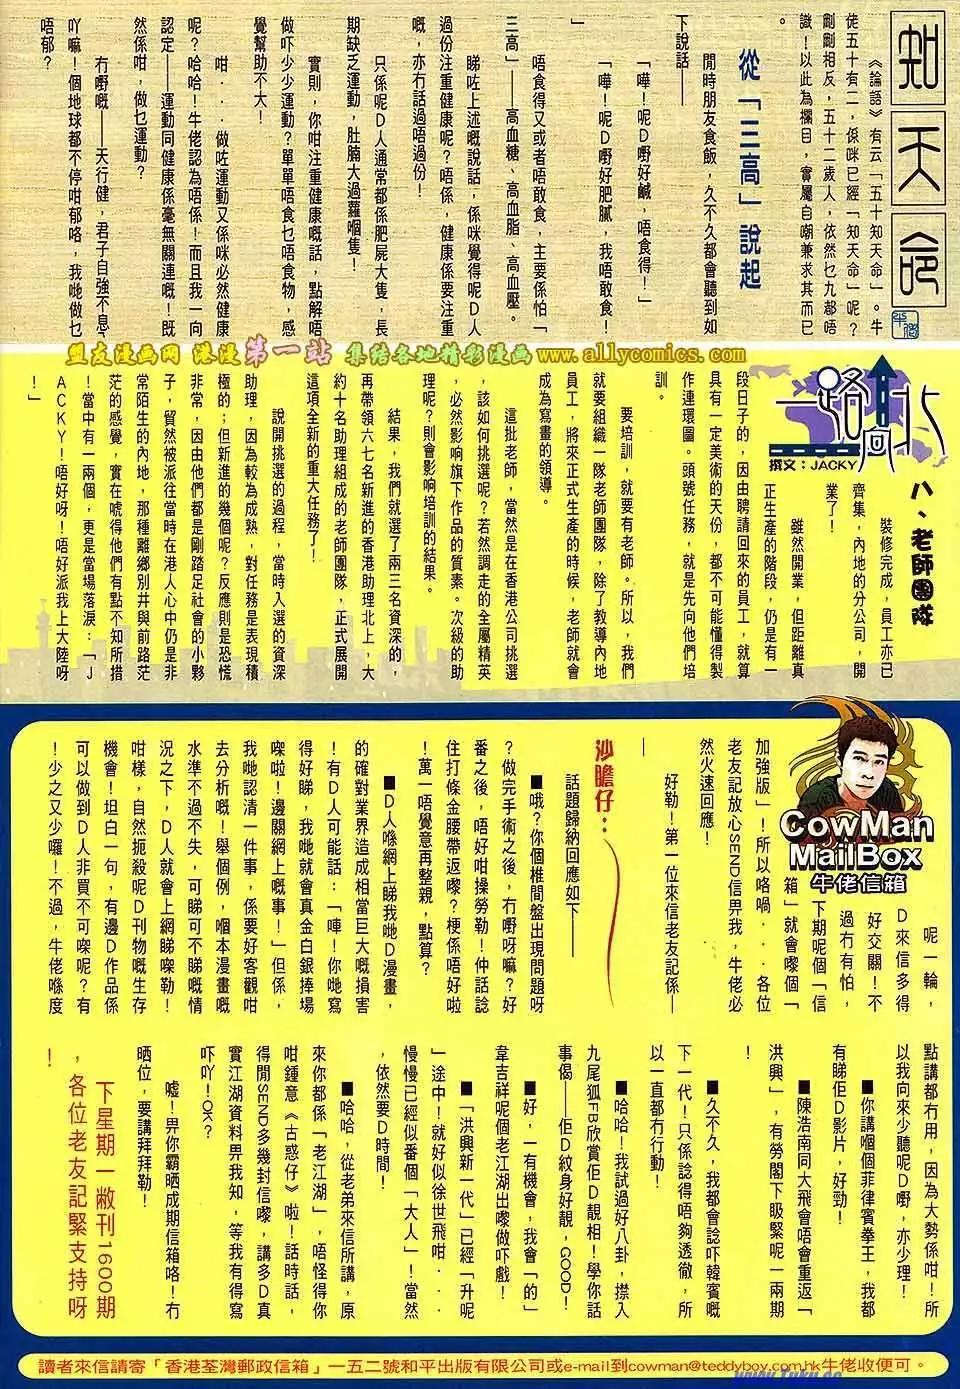 知天命
《論語》有云「五十知天命」。牛
徒五十有二，係咪已經「知天命」呢？
剛剛相反，五十二歲人，依然乜九都唔
識！以此為欄目，實屬自嘲兼求其而已
。
從「三高」說起
閒時朋友食飯，久不久都會聽到如
下說話——
「嘩！呢D嘢好鹹，唔食得！」
「嘩！呢D嘢好肥膩，我唔敢食！
」
唔食得又或者唔敢食，主要係怕「
三高」——高血糖、高血脂、高血壓。
睇咗上述嘅說話，係咪覺得呢D人
過份注重健康呢？唔係，健康係要注重
嘅，亦冇話過唔過份！
只係呢D人通常都係肥屍大隻，長
期缺乏運動，肚腩大過羅嗰隻！
實則，你咁注重健康嘅話，點解唔
做吓少少運動？單單唔食乜唔食物，感
覺幫助不大！
咁．．做咗運動又係咪必然健康
呢？哈哈！牛佬認為唔係！而且我一向
認定——運動同健康係毫無關連嘅！既
然係咁，做乜運動？
冇嘢嘅——天行健，君子自強不息
吖嘛！個地球都不停咁郁咯，我哋做乜
唔郁？
盟友漫画网 港漫第一站 集结各地精彩漫画 www.allycomics.com
一路向北
撰文：JACKY
八、老師團隊
裝修完成，員工亦已
齊集，內地的分公司，開
業了！
雖然開業，但距離真
正生產的階段，仍是有一
段日子的，因由聘請回來的員工，就算
具有一定美術的天份，都不可能懂得製
作連環圖。頭號任務，就是先向他們培
訓。
要培訓，就要有老師。所以，我們
就要組織一隊老師團隊，除了教導內地
員工，將來正式生產的時候，老師就會
成為寫畫的領導。
這批老師，當然是在香港公司挑選
，該如何挑選呢？若然調走的全屬精英
，必然影响旗下作品的質素。次級的助
理呢？則會影响培訓的結果。
結果，我們就選了兩三名資深的，
再帶領六七名新進的香港助理北上，大
約十名助理組成的老師團隊，正式展開
這項全新的重大任務了！
說開挑選的過程，當時入選的資深
助理，因為較為成熟，對任務是表現積
極的；但新進的幾個呢？反應則是恐慌
非常，因由他們都是剛踏足社會的小夥
子，貿然被派往當時在港人心中仍是非
常陌生的內地，那種離鄉別井與前路茫
茫的感覺，實在唬得他們有點不知所措
！當中有一兩個，更是當場落淚：「J
ACKY！唔好呀！唔好派我上大陸呀
！」
CowMan
MailBox
牛佬信箱
呢一輪，
D來信多得
好交關！不
過冇有怕，
下期呢個「信
箱」就會嚟個「
加強版」！所以咯喎．．各位
老友記放心SEND信畀我，牛佬必
然火速回應！
好勒！第一位來信老友記係—
—
沙膽仔：
話題歸納回應如下——
■哦？你個椎間盤出現問題呀
？做完手術之後，冇嘢呀嘛？好
番之後，唔好咁操勞勒！仲話諗
住打條金腰帶返嚟？梗係唔好啦
！萬一唔覺意再整親，點算？
■D人喺網上睇我哋D漫畫，
的確對業界造成相當巨大嘅損害
！有D人可能話：「唓！你哋寫
得好睇，我哋就會真金白銀捧場
㗎啦！邊關網上嘅事！」但係，
我哋認清一件事，係要好客觀咁
去分析嘅！舉個例，嗰本漫畫嘅
水準不過不失，可睇可不睇嘅情
況之下，D人就會上網睇㗎勒！
咁樣，自然扼殺呢D刊物嘅生存
機會！坦白一句，有邊D作品係
可以做到D人非買不可㗎呢？有
！少之又少囉！不過，牛佬喺度
點講都冇用，因為大勢係咁！所
以我向來少聽呢D嘢，亦少理！
■你講嗰個菲律賓拳王，我都
有睇佢D影片，好勁！
■陳浩南同大飛會唔會重返「
洪興」，有勞閣下眼緊呢一兩期
！
■久不久，我都會諗吓韓賓嘅
下一代！只係諗得唔夠透徹，所
以一直都冇行動！
■哈哈！我試過好八卦，㩒入
九尾狐FB欣賞佢D靚相！學你話
事偈——佢D紋身好靚，GOOD！
■好，一有機會，我會「的」
韋吉祥呢個老江湖出嚟做吓戲！
■「洪興新一代」已經「升呢
」途中！就好似徐世飛咁．．
慢慢已經似番個「大人」！當然
，依然要D時間！
■哈哈，從老弟來信所講，原
來你都係「老江湖」，唔怪得你
咁鍾意《古惑仔》啦！話時話，
得閒SEND多幾封信嚟，講多D真
實江湖資料畀我知，等我有得寫
吓吖！OK？
噓！畀你霸晒成期信箱咯！冇
晒位，要講拜拜勒！
下星期一敝刊1600期
，各位老友記緊支持呀
！
讀者來信請寄「香港荃灣郵政信箱」一五二號和平出版有限公司或e-mail到cowman@teddyboy.com.hk牛佬收便可。